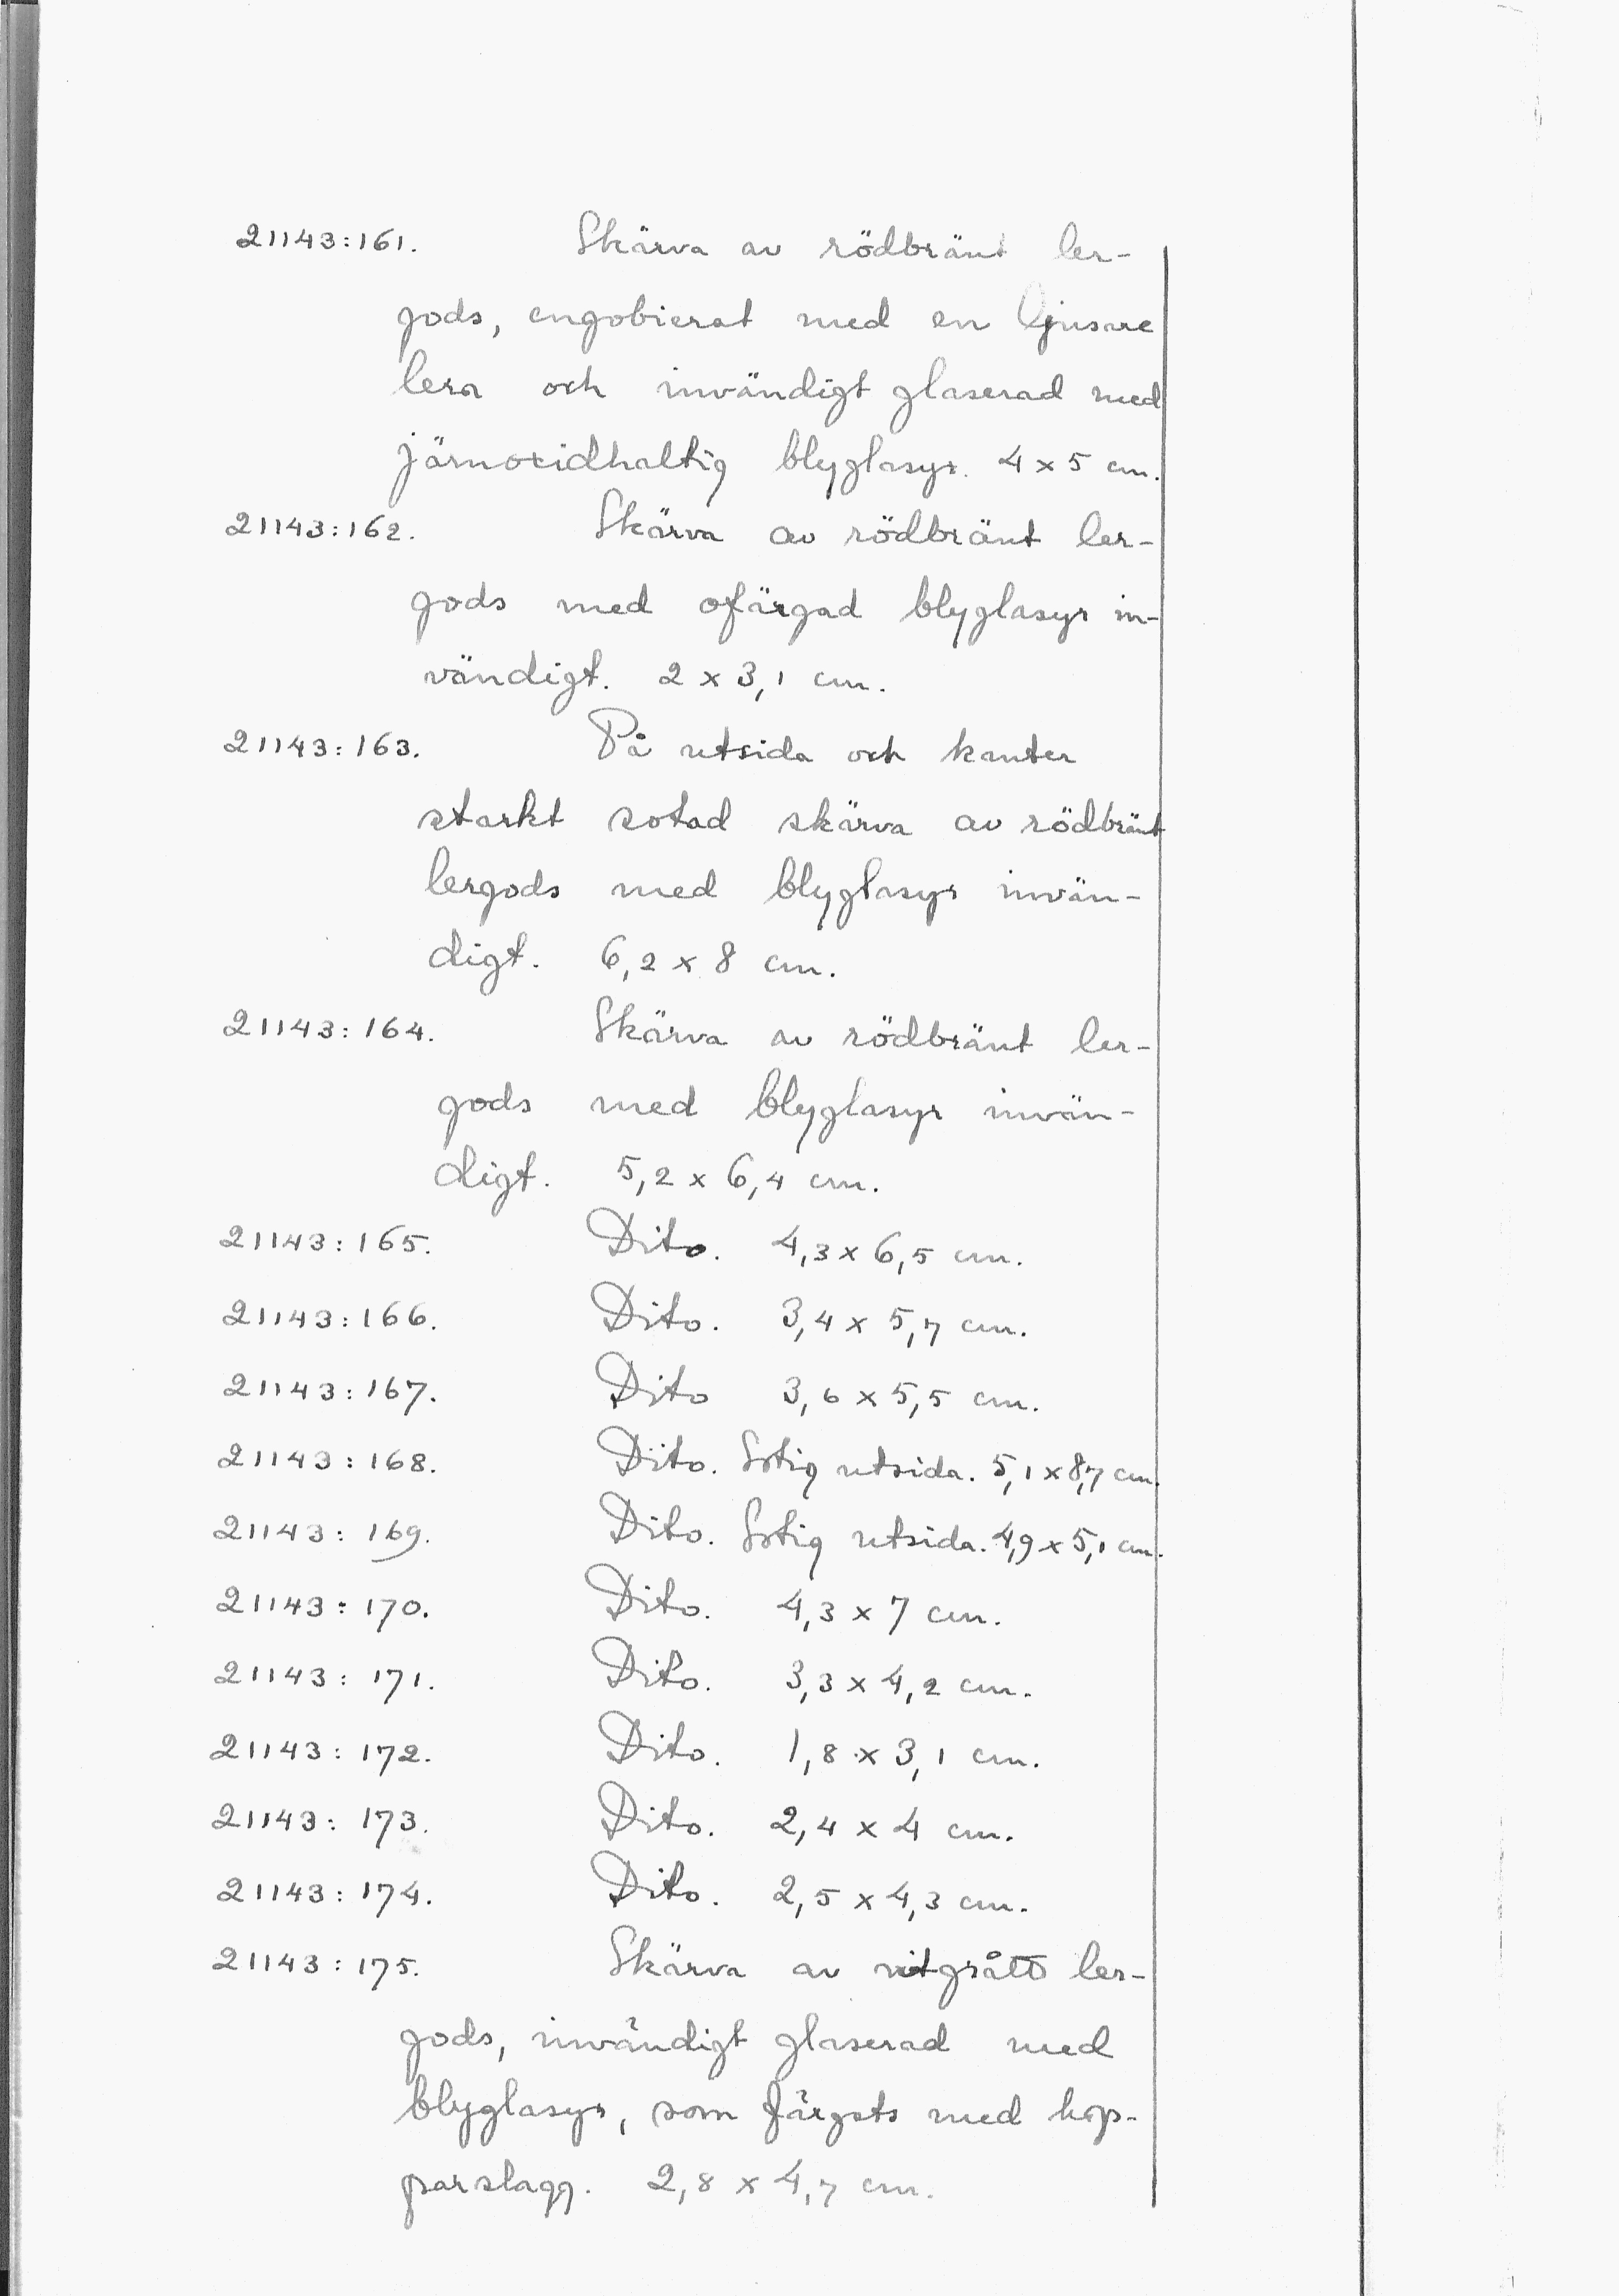 21143:161. Skärva av rödbränt ler-
gods, engobierat med en ljusare
lera och invändigt glaserad med
järnoxidhaltig blyglasyr. 4 x 5 cm.
21143:162. Skärva av rödbränt ler-
gods med ofärgad blyglasyr in-
vändigt. 2 x 3,1 cm.
21143:163. På utsida och kanter
starkt sotad skärva av rödbränt
lergods med blyglasyr invän-
digt. 6,2 x 8 cm.
21143:164. Skärva av rödbränt ler-
gods med blyglasyr invän-
digt. 5,2 x 6,4 cm.
21143:165. Dito. 4,3 x 6,5 cm.
21143:166. Dito. 3,4 x 5,7 cm.
21143:167. Dito 3,6 x 5,5 cm.
21143:168. Dito. Sotig utsida. 5,1 x 8,7 cm.
21143:169. Dito. Sotig utsida. 4,9 x 5,1 cm.
21143:170. Dito. 4,3 x 7 cm.
21143:171. Dito. 3,3 x 4,2 cm.
21143:172. Dito. 1,8 x 3,1 cm.
21143:173. Dito. 2,4 x 4 cm.
21143:174. Dito. 2,5 x 4,3 cm.
21143:175. Skärva av vitgrått ler-
gods, invändigt glaserad med
blyglasyr, som färgats med kop-
parslagg. 2,8 x 4,7 cm.